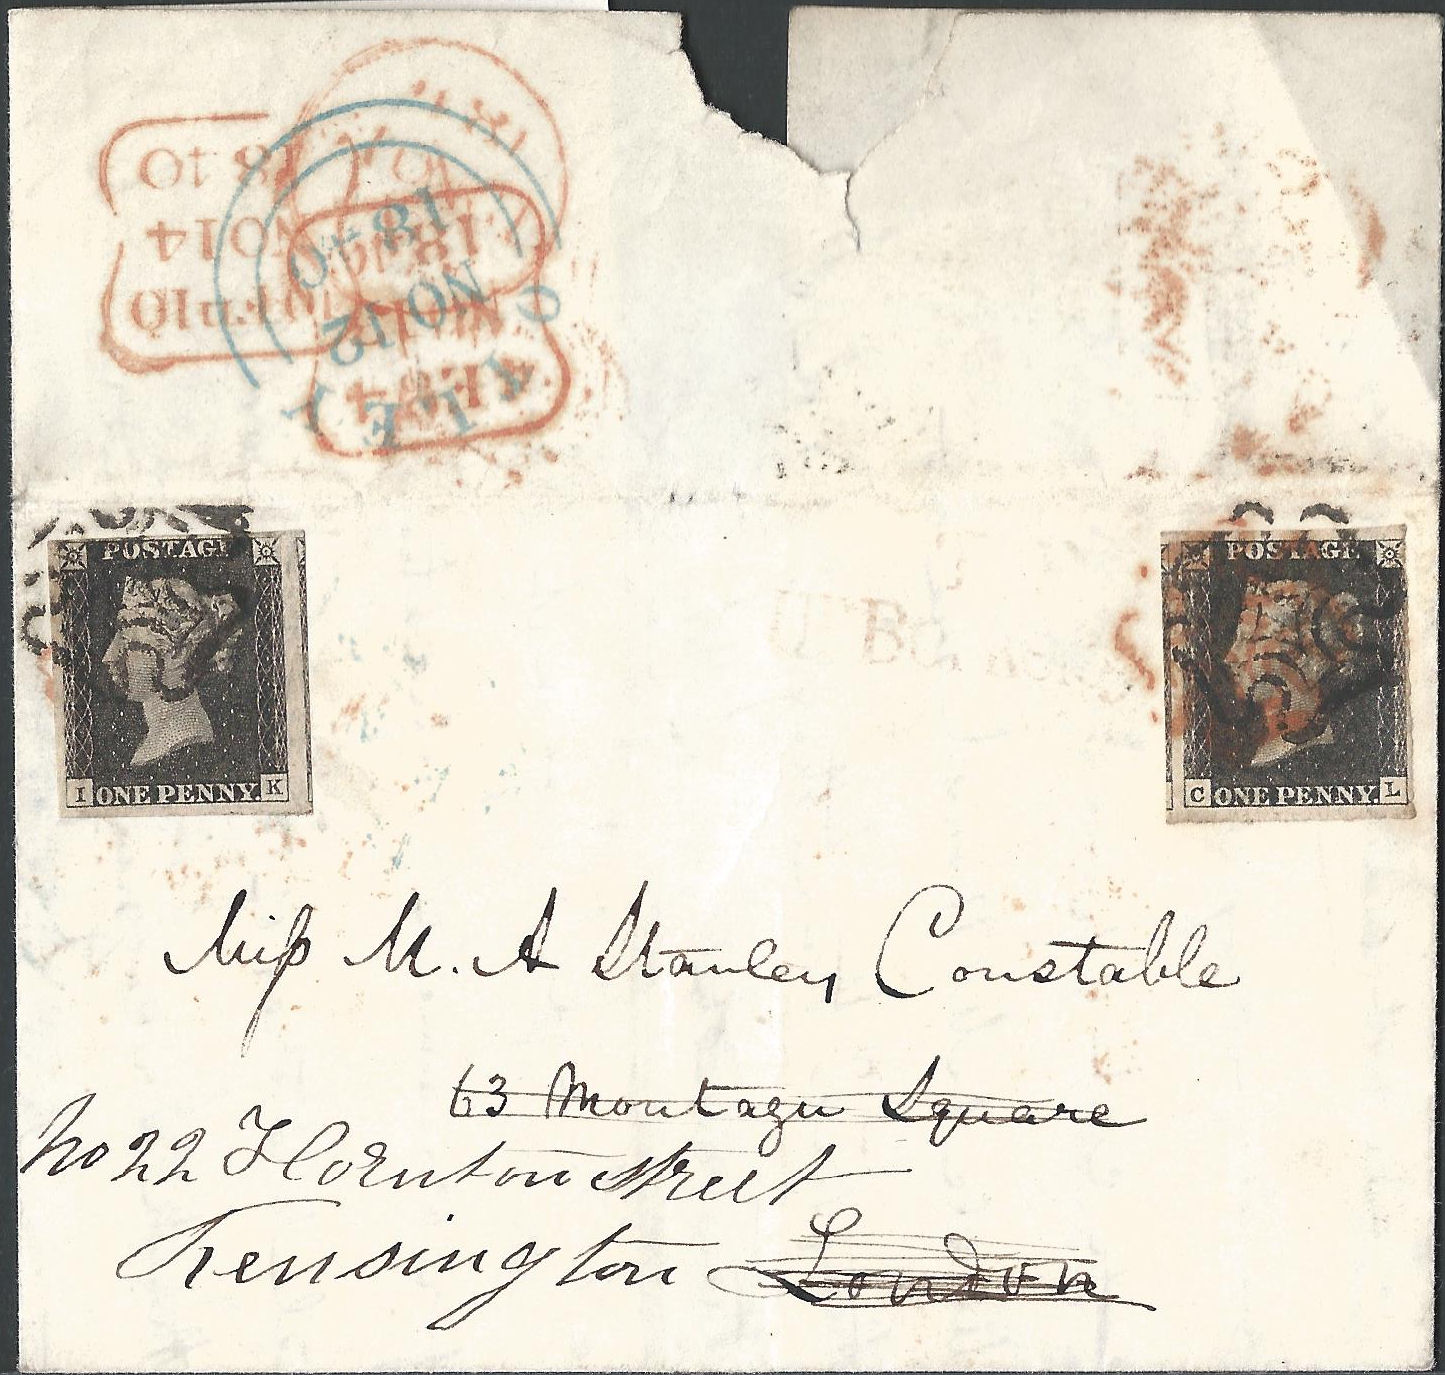 18 40
NO 14
18 40
NO 12
POSTAGE
I ONE PENNY. K
POSTAGE
C ONE PENNY. L
Miss M. A Stanley Constable
63 Montagu Square
No 22 Hornton Street
Kensington London